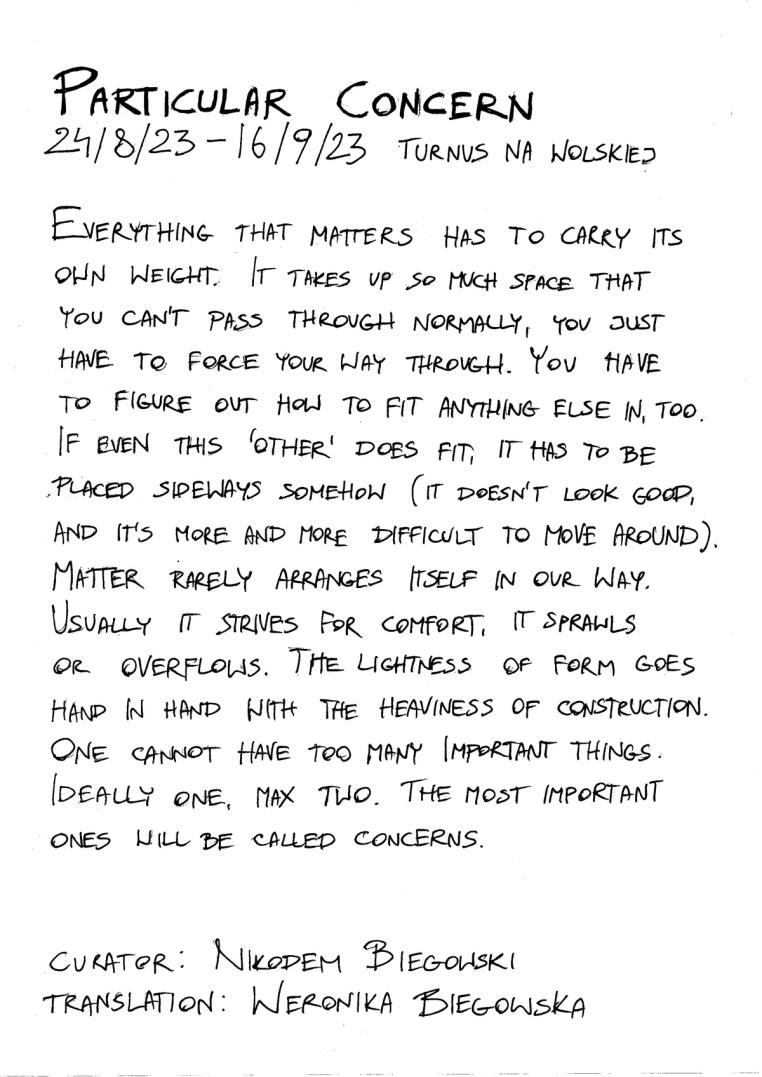 PARTICULAR CONCERN
24/8/23 – 16/9/23 TURNUS NA WOLSKIEJ
EVERYTHING THAT MATTERS HAS TO CARRY ITS
OWN WEIGHT. IT TAKES UP SO MUCH SPACE THAT
YOU CAN'T PASS THROUGH NORMALLY, YOU JUST
HAVE TO FORCE YOUR WAY THROUGH. YOU HAVE
TO FIGURE OUT HOW TO FIT ANYTHING ELSE IN, TOO.
IF EVEN THIS 'OTHER' DOES FIT, IT HAS TO BE
PLACED SIDEWAYS SOMEHOW (IT DOESN'T LOOK GOOD,
AND IT'S MORE AND MORE DIFFICULT TO MOVE AROUND).
MATTER RARELY ARRANGES ITSELF IN OUR WAY.
USUALLY IT STRIVES FOR COMFORT, IT SPRAWLS
OR OVERFLOWS. THE LIGHTNESS OF FORM GOES
HAND IN HAND WITH THE HEAVINESS OF CONSTRUCTION.
ONE CANNOT HAVE TOO MANY IMPORTANT THINGS.
IDEALLY ONE, MAX TWO. THE MOST IMPORTANT
ONES WILL BE CALLED CONCERNS.
CURATOR: NIKODEM BIEGOWSKI
TRANSLATION: WERONIKA BIEGOWSKA